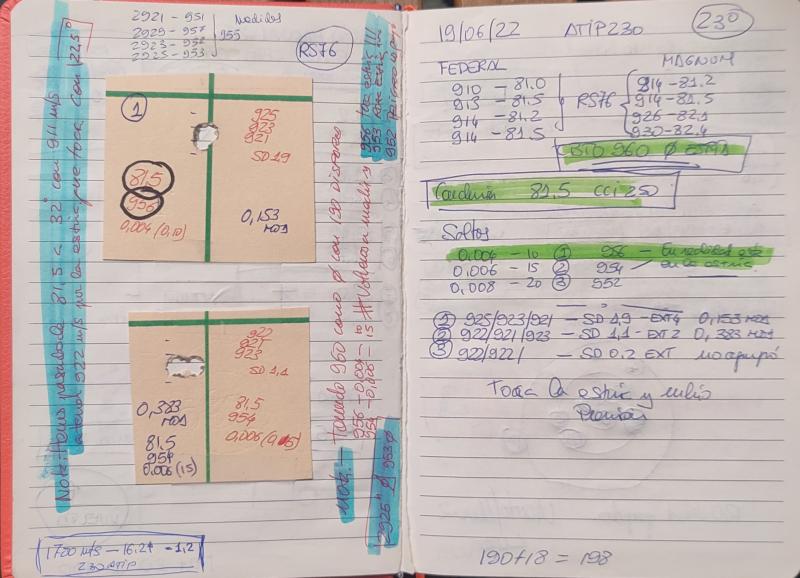 2921 - 951
2929 - 957
2923 - 952
2925 - 953
955
Medidas
RS76
1
925
923
921
SD 1,9
81.5
956
0,004 (0,10)
0,153
MOA
922
921
923
SD 1,1
0,383
MOA
81.5
954
0,006 (15)
81.5
954
0,006 (0,15)
Nota: Hemos pasado de 81.5 a 32° con 911 m/s
a tener 922 m/s por la estria que toca con 22.5°
Nota: — Tomado 960 como Ø con 190 disparos
956 - 0,004 - 10
954 - 0,006 - 15
956 toca estria !!!
953
952
2925" Ø 953Ø
1700 m/s — 16.24 — 1,2
230 ATIP
19/06/22 ATIP230
230
FEDERAL
MAGNUM
910 — 81.0
913 — 81.5
914 — 81.2
914 — 81.5
RS76
914 - 81.2
914 - 81.5
926 - 82.1
930 - 82.4
BTO 960 Ø ESTRIA
81,5 CCI 250
Saltos
0,004 - 10 1 956 —
0,006 - 15 2 954
0,008 - 20 3 952
1 925/923/921 — SD 1,9 - EXT 4 0,153 MOA
2 922/921/923 — SD 1,1 - EXT 2 0,383 MOA
3 922/922/ — SD 0.2 EXT no agrupó
Toca la estria y subio
Presion
190+18 = 198